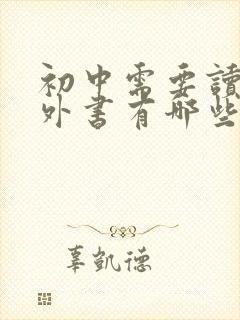 初中需要讀
外書有哪些
辜凱德